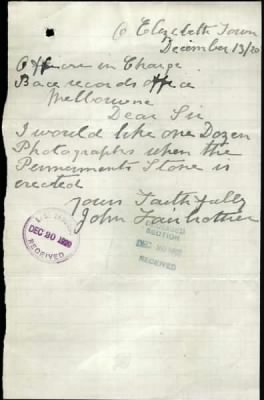 O Elizabeth Town
December 13/20
Officer in Charge
Bace records office
Melbourne
Dear Sir
I would like one Dozen
Photographs when the
Permaments Stone is
erected
yours Faithfully
John Fairbrother
DEC 20 1920
RECEIVED
SECTION
DEC 20 1920
RECEIVED